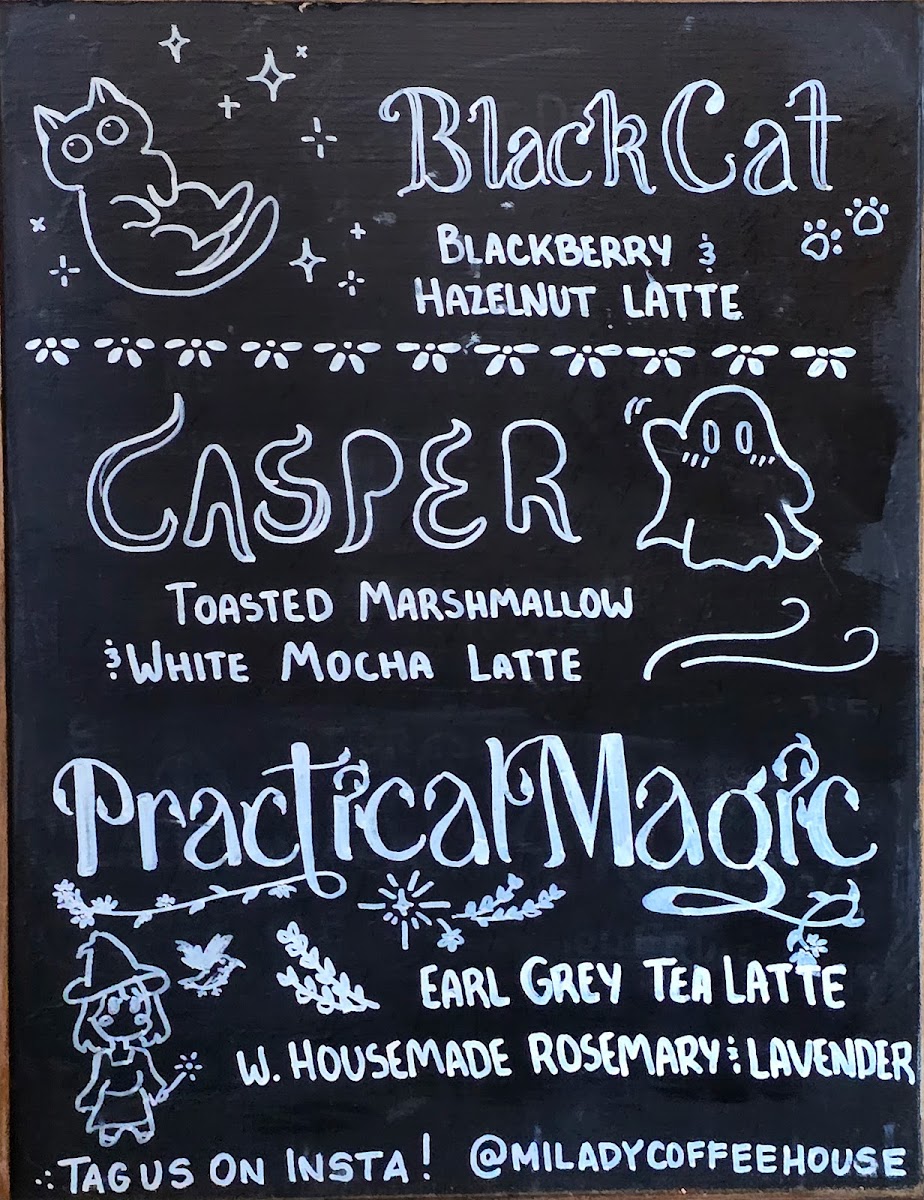 Black Cat
BLACKBERRY &
HAZELNUT LATTE
CASPER
TOASTED MARSHMALLOW
& WHITE MOCHA LATTE
Practical Magic
EARL GREY TEA LATTE
W. HOUSEMADE ROSEMARY & LAVENDER
TAG US ON INSTA! @MILADYCOFFEEHOUSE